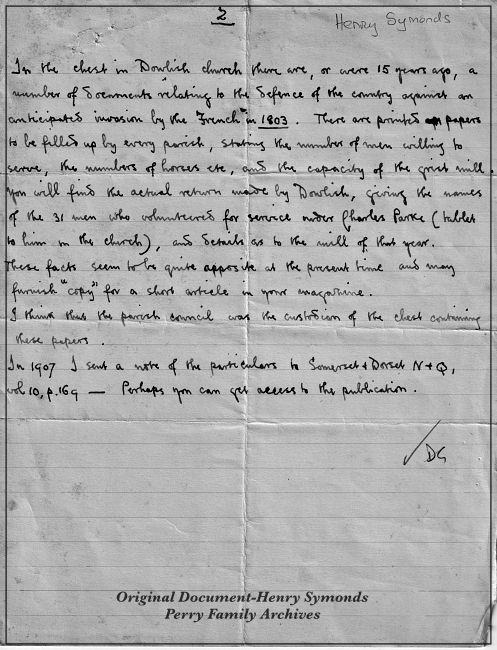 2
Henry Symonds
In the chest in Dowlish church there are, or were 15 years ago, a
number of documents relating to the defence of the country against an
anticipated invasion by the "French" in 1803. There are printed papers
to be filled up by every parish, stating the number of men willing to
serve, the numbers of horses etc, and the capacity of the grist mill.
You will find the actual return made by Dowlish, giving the names
of the 31 men who volunteered for service under Charles Parke (tablet
to him in the church), and details as to the mill of that year.
These facts seem to be quite apposite at the present time and may
furnish "copy" for a short article in your magazine.
I think that the parish council was the custodian of the chest containing
these papers.
In 1907 I sent a note of the particulars to Somerset & Dorset N & Q,
vol 10, p.169 — Perhaps you can get access to the publication.
Original Document-Henry Symonds
Perry Family Archives